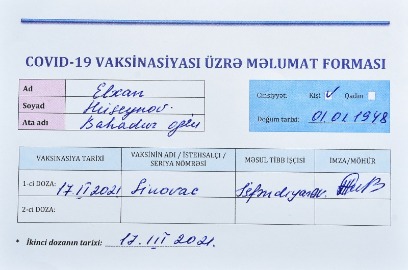 COVID-19 VAKSİNASİYASI ÜZRƏ MƏLUMAT FORMASI
Ad Elxan
Soyad Hüseynov.
Ata adı Bahadur oğlu
Cinsiyyət: Kişi ✓ Qadın
Doğum tarixi: 01.01.1948
VAKSİNASİYA TARİXİ VAKSİNİN ADI / İSTEHSALÇI / SERİYA NÖMRƏSİ MƏSUL TİBB İŞÇİSİ İMZA/MÖHÜR
1-ci DOZA: 17.II 2021 Sinovac
2-ci DOZA:
* İkinci dozanın tarixi: 17.III 2021.